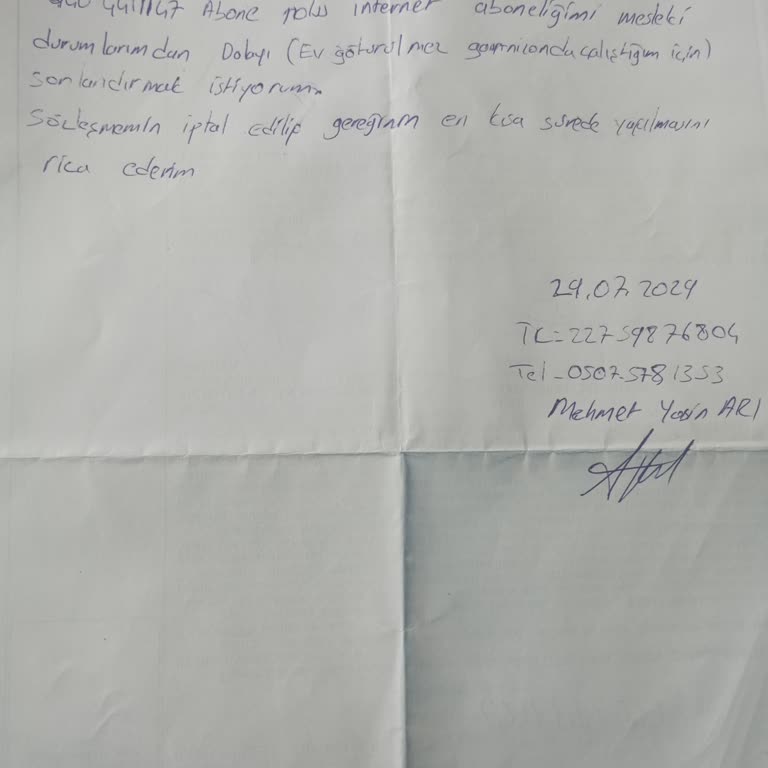 Abone nolu internet aboneliğimi mesleki
durumlarımdan Dolayı (Ev götürülmez garnizonda çalıştığım için)
sonlandırmak istiyorum.
Sözleşmemin iptal edilip gereğinin en kısa sürede yapılmasını
rica ederim
29.07.2024
TC=22759876804
Tel-0507.5781353
Mehmet Yasin ARI